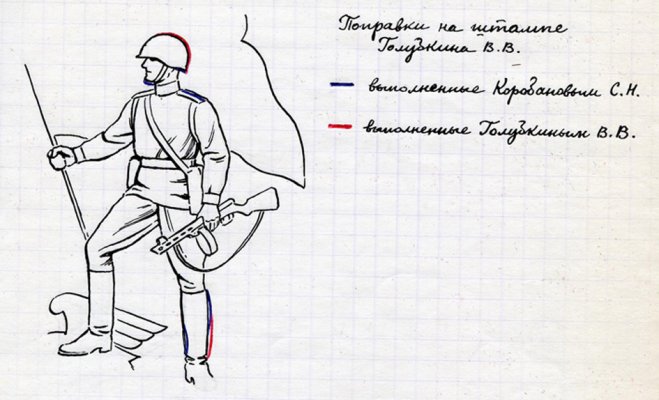 Поправки на штампе
Голубкина В.В.
выполненные Коробановым С.Н.
выполненные Голубкиным В.В.